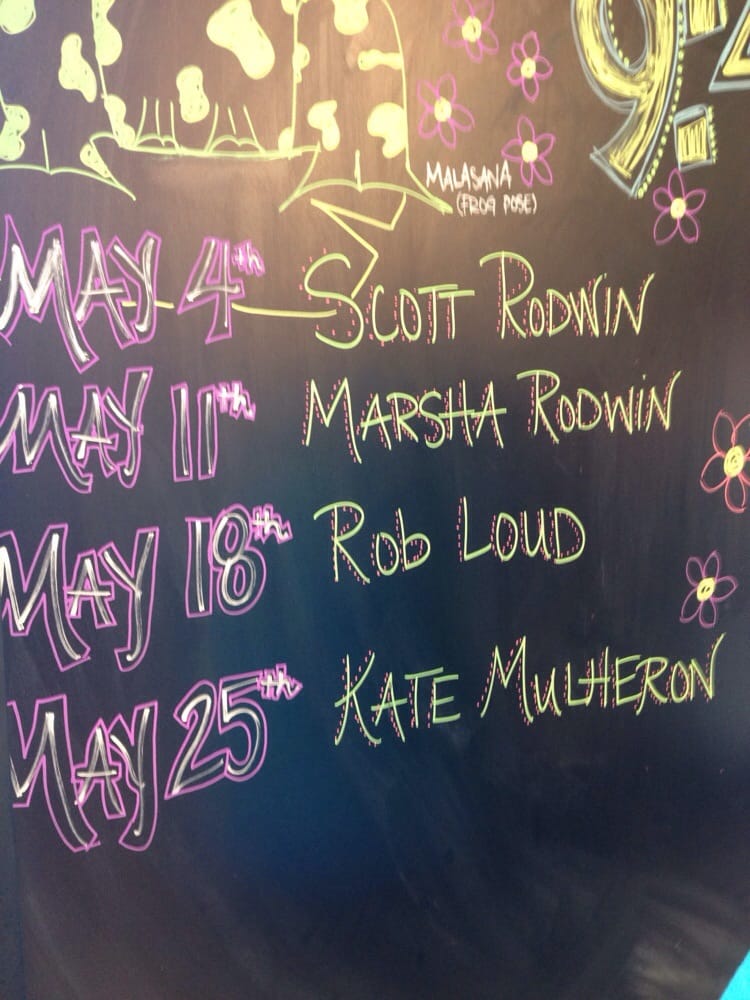 MALASANA
(FROG POSE)
MAY 4th SCOTT RODWIN
MAY 11th MARSHA RODWIN
MAY 18th Rob LOUD
MAY 25th KATE MULHERON